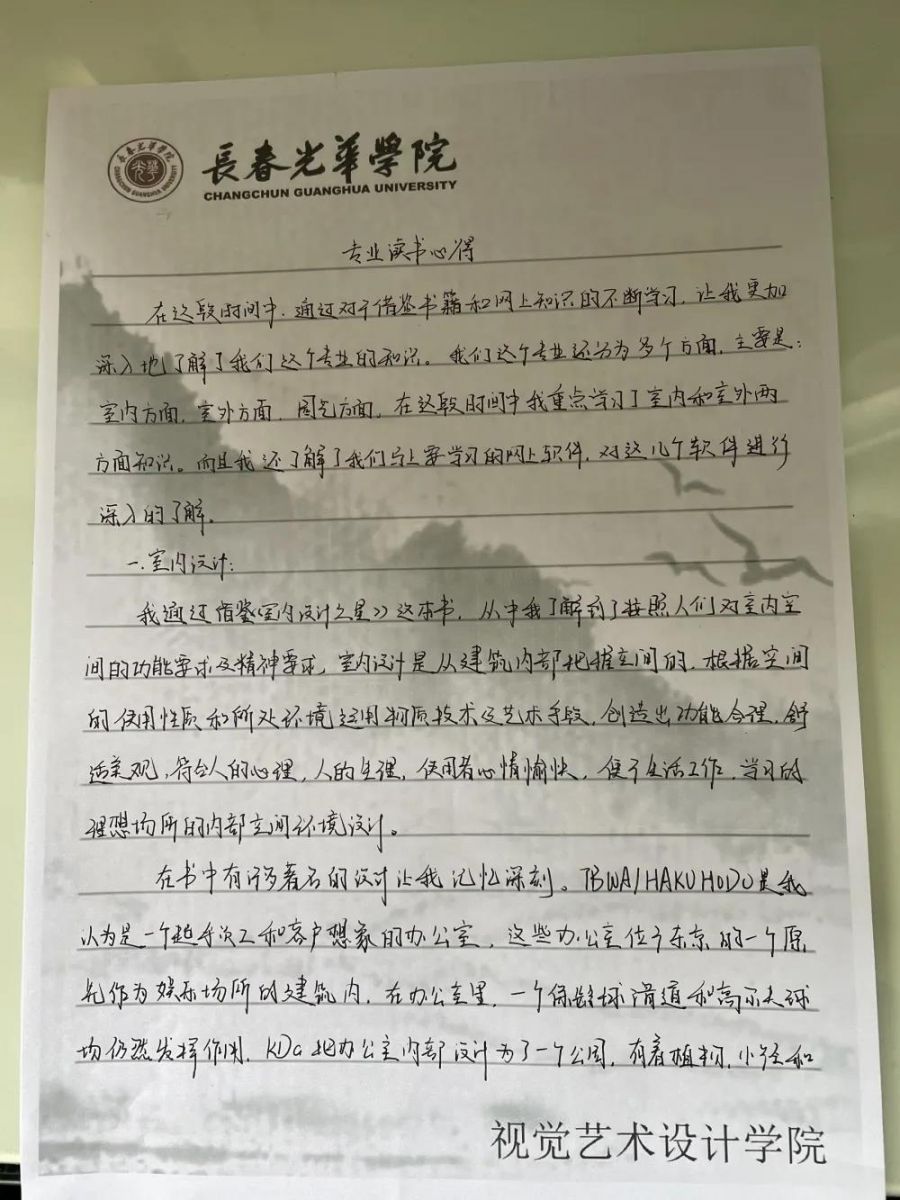 長春光華學院
CHANGCHUN GUANGHUA UNIVERSITY
专业读书心得
在这段时间中，通过对于借鉴书籍和网上知识的不断学习，让我更加
深入地了解了我们这个专业的知识。我们这个专业还分为多个方面，主要是：
室内方面，室外方面，园艺方面，在这段时间中我重点学习了室内和室外两
方面知识。而且我还了解了我们马上要学习的网上软件，对这几个软件进行
深入的了解。
一.室内设计：
我通过借鉴室内设计之星》这本书，从中我了解到了按照人们对室内空
间的功能要求及精神要求，室内设计是从建筑内部把握空间的，根据空间
的使用性质和所处环境运用物质技术及艺术手段，创造出功能合理，舒
适美观，符合人的心理，人的生理，使用者心情愉快，便于生活工作，学习的
理想场所的内部空间环境设计。
在书中有许多著名的设计让我记忆深刻。TBWA/HAKUHODO是我
认为是一个超乎员工和客户想象的办公室，这些办公室位于东京的一个原
先作为娱乐场所的建筑内，在办公室里，一个保龄球滑道和高尔夫球
场仍然发挥作用，KDa把办公室内部设计为了一个公园，有着植物，小径和
视觉艺术设计学院